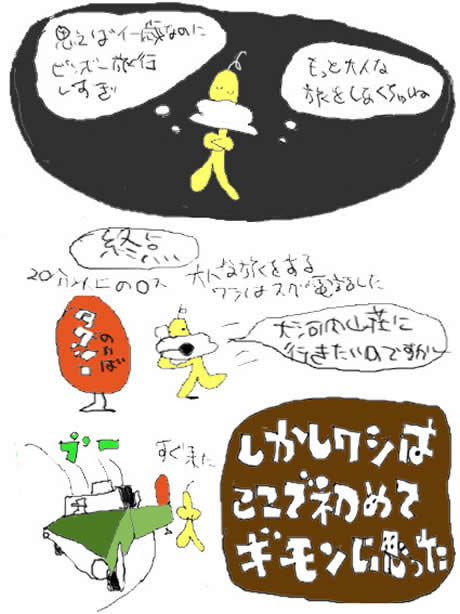 思えばイー歳なのに
ビンボー旅行
しすぎ
もっと大人な
旅をしなくちゃね
終点
20分以上のロス
大人な旅をする
ワシはスグ電話した
タクシー
のりば
大河内山荘に
行きたいのですが
ブー
すぐ来た
しかしワシは
ここで初めて
ギモンに思った